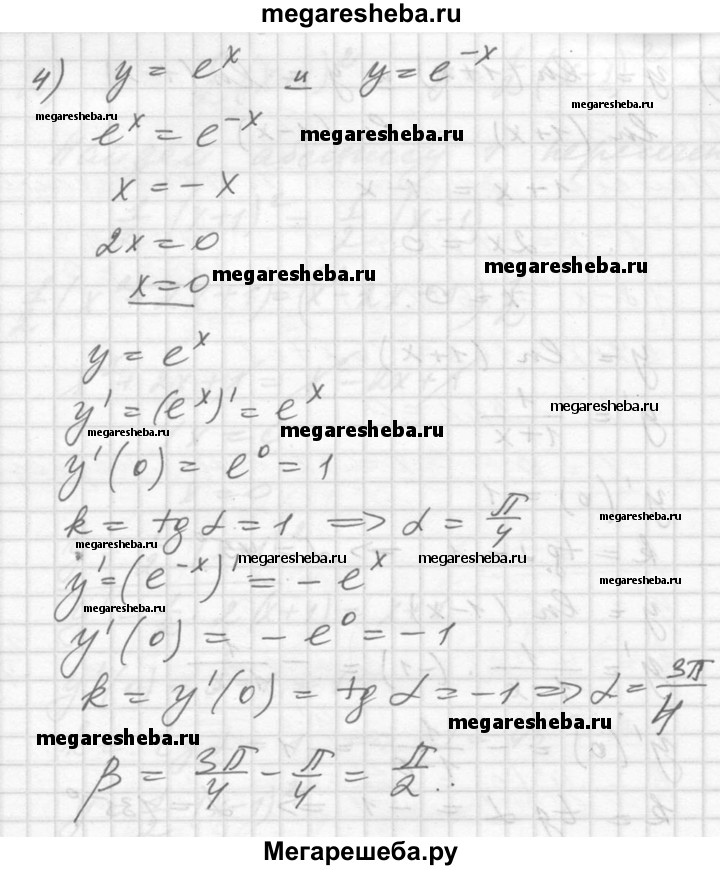 megaresheba.ru
4) y = e^x и y = e^-x
megaresheba.ru
megaresheba.ru
e^x = e^-x megaresheba.ru
x = - x
2x = 0
x = 0 megaresheba.ru megaresheba.ru
y = e^x
y' = (e^x)' = e^x megaresheba.ru
megaresheba.ru megaresheba.ru
y'(0) = e^0 = 1
k = tg α = 1 => α = π/4 megaresheba.ru
megaresheba.ru megaresheba.ru megaresheba.ru
y' = (e^-x)' = - e^x megaresheba.ru
megaresheba.ru
y'(0) = - e^0 = - 1
k = y'(0) = tg α = -1 => α = 3π/4
megaresheba.ru megaresheba.ru
β = 3π/4 - π/4 = π/2.
Мегарешеба.ру